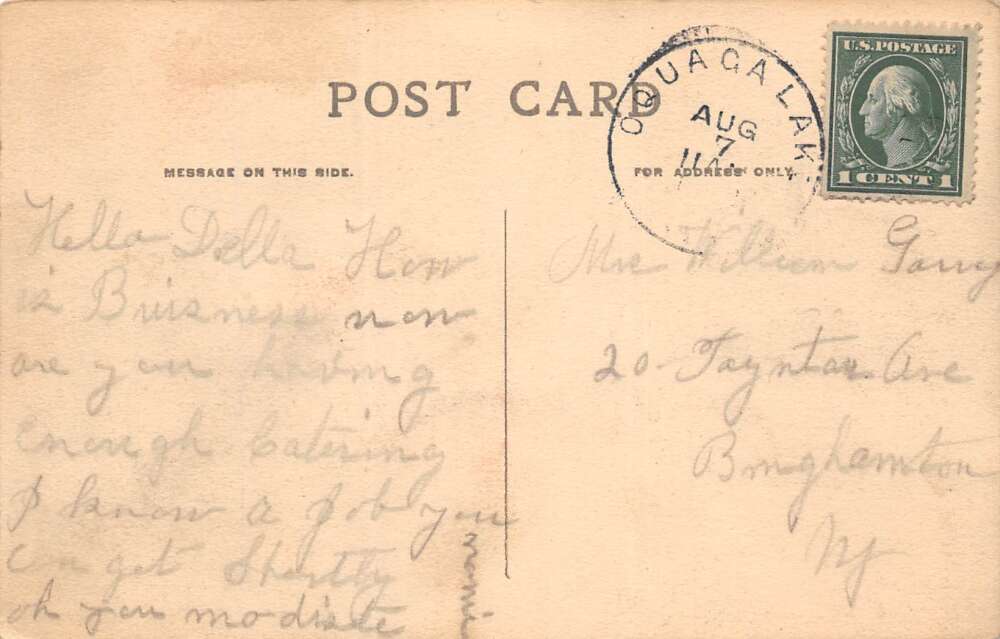 POST CARD
OQUAGA LAKE
AUG
7
U.S. POSTAGE
1 CENT 1
MESSAGE ON THIS SIDE.
FOR ADDRESS ONLY.
Hello Della How
is Buisness now
are you having
Enough Catering
I know a job you
can get Shortly
oh you modiste
Mrs William Garry
20 Tayntor Ave
Binghamton
NY